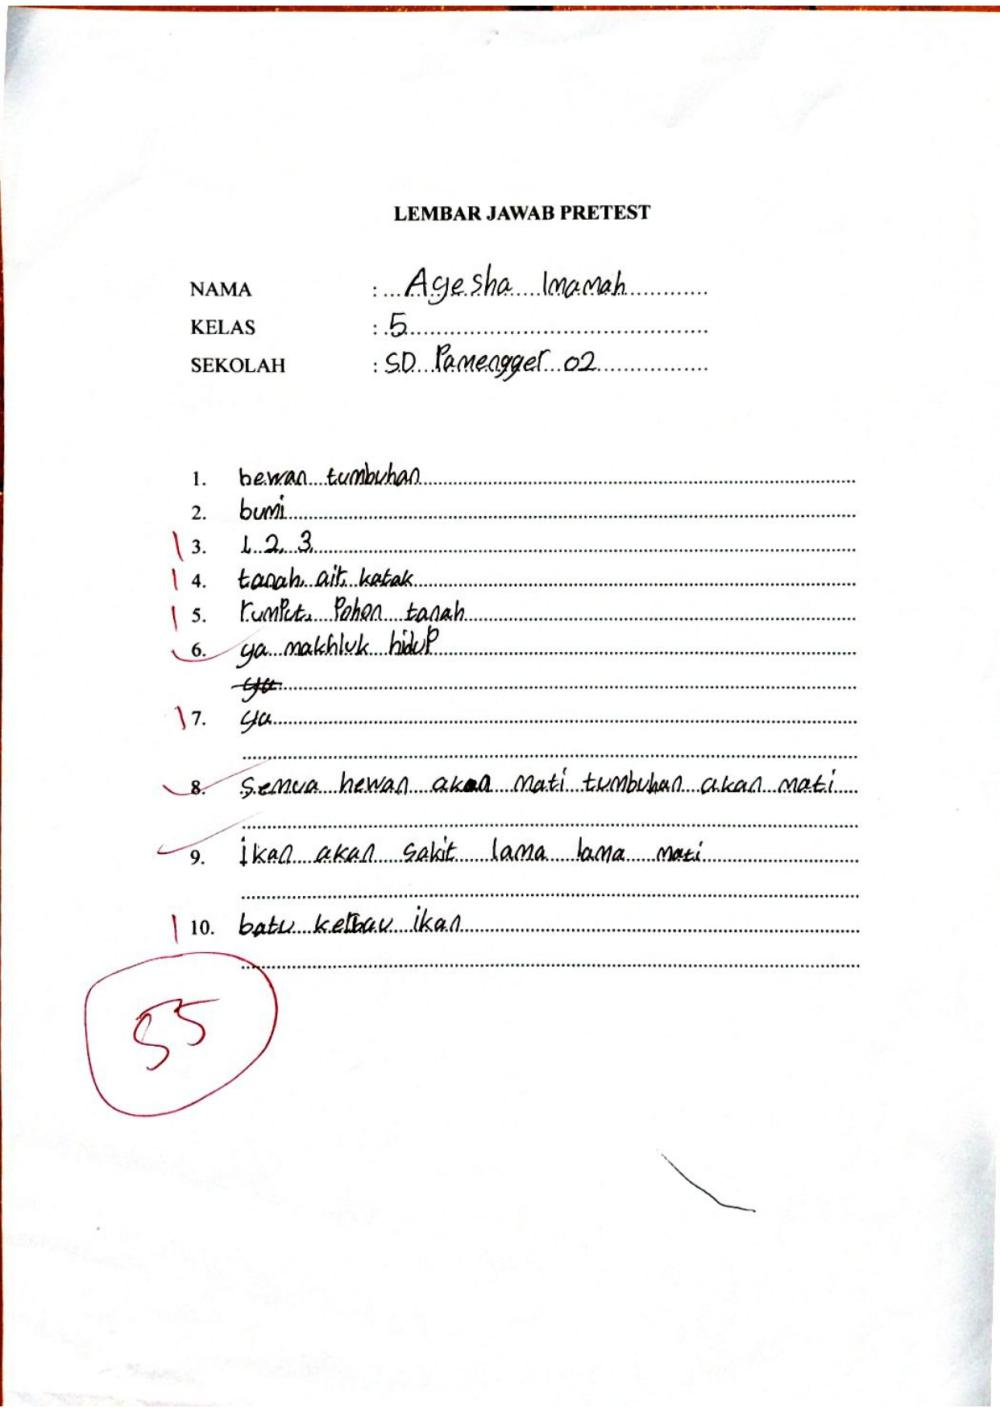 LEMBAR JAWAB PRETEST
NAMA : Agesha Imamah
KELAS : 5
SEKOLAH : SD Pamengger 02
1. hewan tumbuhan
2. bumi
3. 1, 2, 3
4. tanah, air, katak
5. rumput, Pohon tanah
6. ya makhluk hidup
ya
7. ya
8. Semua hewan akan mati tumbuhan akan mati
9. ikan akan sakit lama lama mati
10. batu kerbau ikan
55